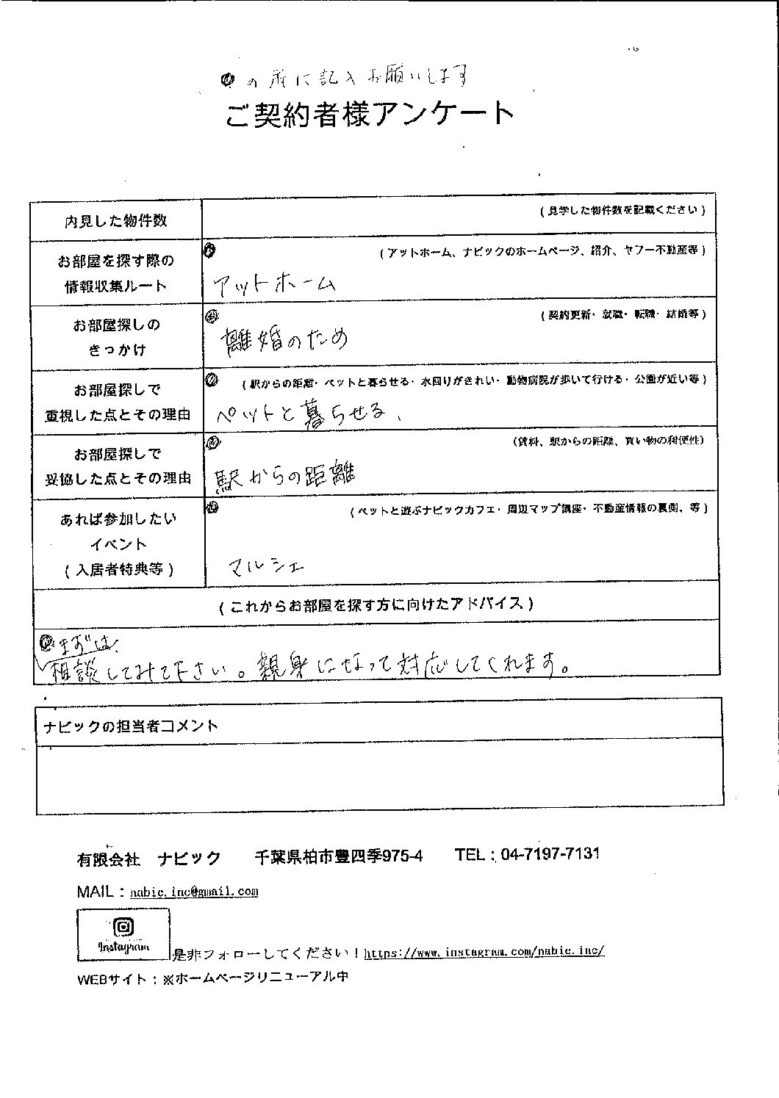 の所に記入お願いします
ご契約者様アンケート
内見した物件数
(見学した物件数を記載ください)
お部屋を探す際の
情報収集ルート
(アットホーム、ナビックのホームページ、紹介、ヤフー不動産等)
アットホーム
お部屋探しの
きっかけ
(契約更新・就職・転職・結婚等)
離婚のため
お部屋探しで
重視した点とその理由
(駅からの距離・ペットと暮らせる・水回りがきれい・動物病院が歩いて行ける・公園が近い等)
ペットと暮らせる、
お部屋探しで
妥協した点とその理由
(賃料、駅からの距離、買い物の利便性)
駅からの距離
あれば参加したい
イベント
(入居者特典等)
(ペットと遊ぶナビックカフェ・周辺マップ講座・不動産情報の裏側、等)
マルシェ
(これからお部屋を探す方に向けたアドバイス)
まずは
相談してみて下さい。親身になって対応してくれます。
ナビックの担当者コメント
有限会社 ナビック 千葉県柏市豊四季975-4 TEL:04-7197-7131
MAIL:nabic.inc@gmail.com
Instagram
是非フォローしてください!https://www.instagram.com/nabic.inc/
WEBサイト:※ホームページリニューアル中